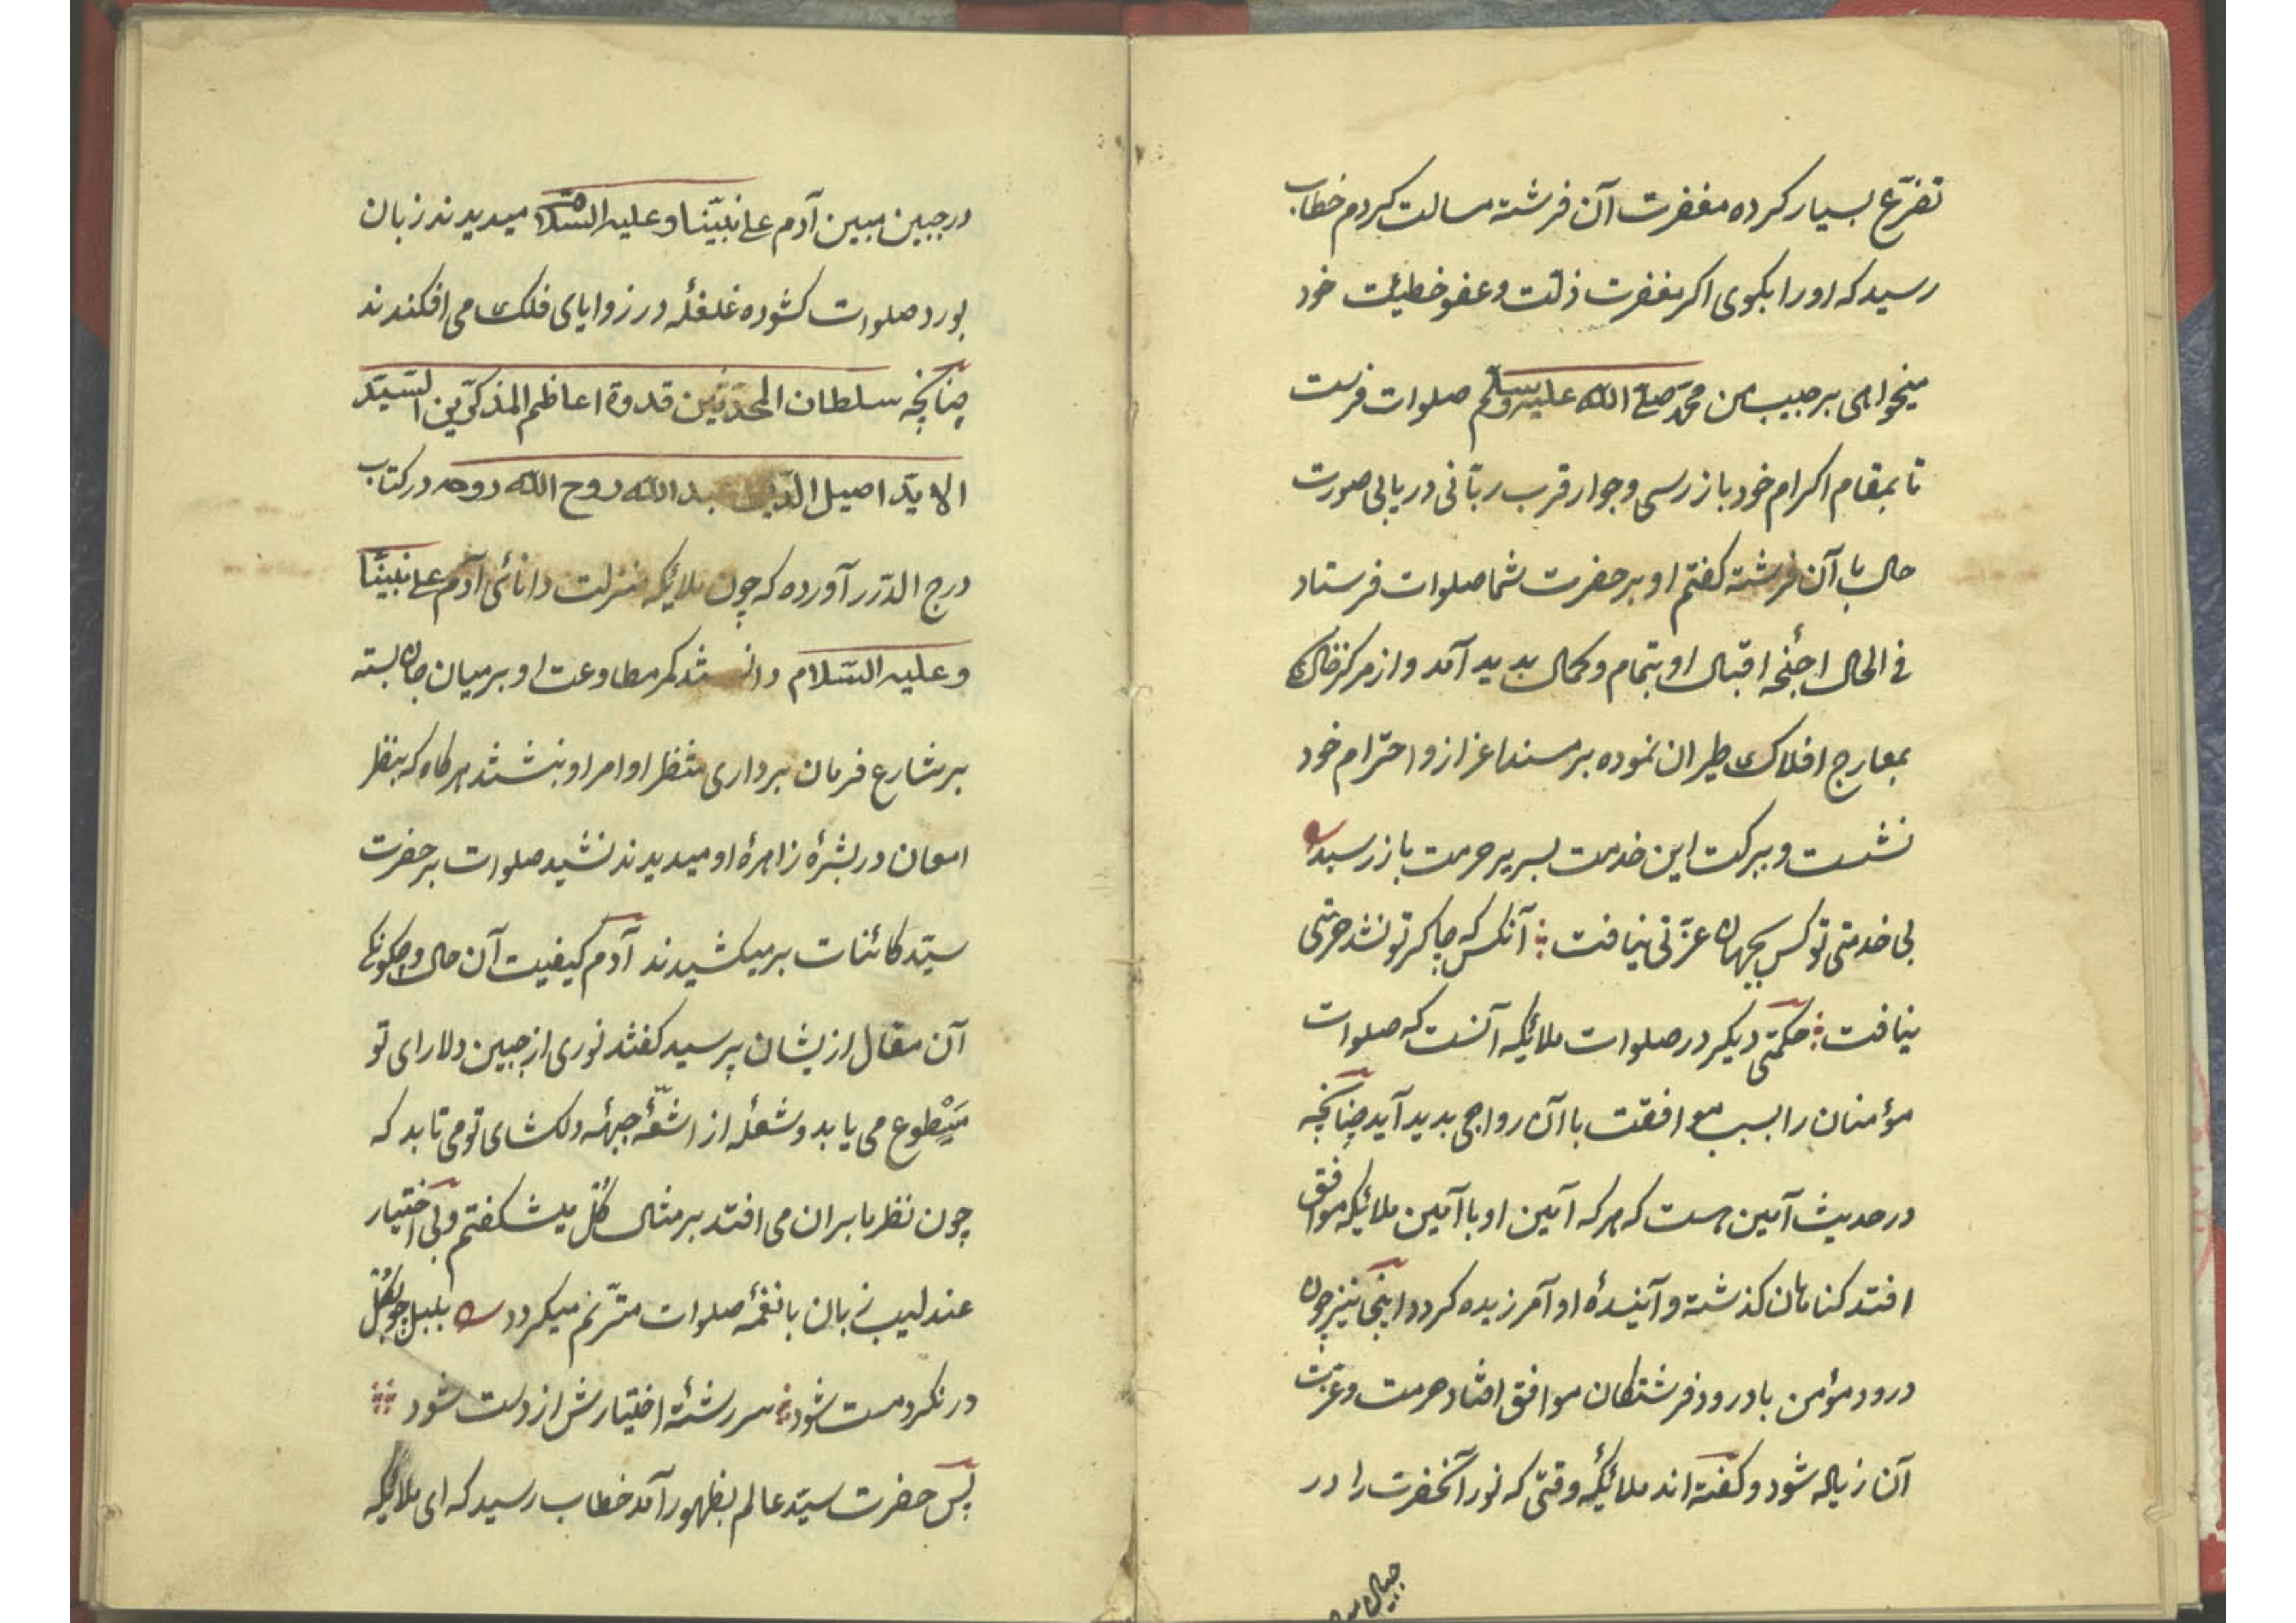 تضرّع بسیار کرده مغفرت آن فرشته مسالت کردم خطاب
رسید که اورا بکوی اکر مغفرت ذلت وعفو خطیئت خود
میخواهی بر حبیب من محمد صلی الله علیه وسلم صلوات فرست
تا بمقام اکرام خود باز رسی وجوار قرب ربّانی دریابی صورت
حال با آن فرشته کفتم او بر حضرت شما صلوات فرستاد
فی الحال اجنحۀ اقبال او بتمام وکمال پدید آمد واز مرکز خاک
بمعارج افلاک طیران نموده بر مسند اعزاز واحترام خود
نشست وببرکت این خدمت بسریر حرمت باز رسید
بی خدمتی تو کس بجهان عزّتی نیافت آنکس که چاکر تو نشد حرمتی
نیافت حکمتی دیکر در صلوات ملائکه آنست که صلوات
مؤمنان را بسبب موافقت باآن رواجی بدید آید چنانچه
در حدیث آمین هست که هر که آمین او باآمین ملائکه موافق
افتد کناهان کذشته وآیندۀ او آمرزیده کردد اینجا نیز چون
درود مؤمن با درود فرشتکان موافق افتاد حرمت وعزت
آن زیاله شود وکفته اند ملائکه وقتی که نور آنحضرت را در
در جبین مبین آدم علی نبیّنا وعلیه السّلام میدیدند زبان
بورد صلوات کشوده غلغله در زوایای فلک می افکندند
چنانچه سلطان المحدّثین قدوة اعاظم المذکّرین السّیّد
الایّد اصیل الدّین عبد الله روح الله روحه در کتاب
درج الدّرر آورده که چون ملائکه منزلت دانائی آدم علی نبیّنا
وعلیه السّلام دانستند کمر مطاوعت او بر میان جان بسته
بر شارع فرمان برداری منتظر اوامر او بنشستند هر کاه که بنظر
امعان در بشرۀ زاهرۀ او میدیدند نشید صلوات بر حضرت
سیّد کائنات بر میکشیدند آدم کیفیت آن حال وچکونکی
آن مقال از یشان پرسید کفتند نوری از جبین دلارای تو
سطوع می یابد وشعلۀ از اشعّۀ جبهۀ دلکشای تو می تابد که
چون نظر ما بران می افتد بر مثال کل میشکفتم وبی اختیار
عندلیب زبان بانغمۀ صلوات مترنم میکردد بلبل چو بکل
در نکرد مست شود سر رشتۀ اختیارش از دست شود
پس حضرت سیّد عالم بظهور آمد خطاب رسید که ای ملائکه